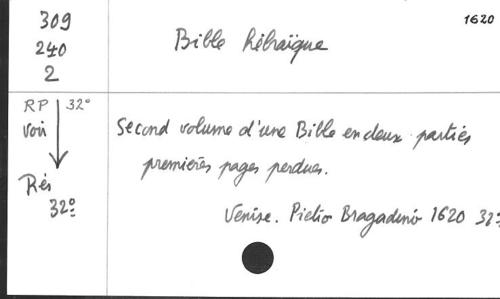 309
240
2
1620
Bible Hébraïque
RP 32°
voir
Rés
32°
Second volume d'une Bible en deux parties
premières pages perdues.
Venise. Pietro Bragadino 1620 32°